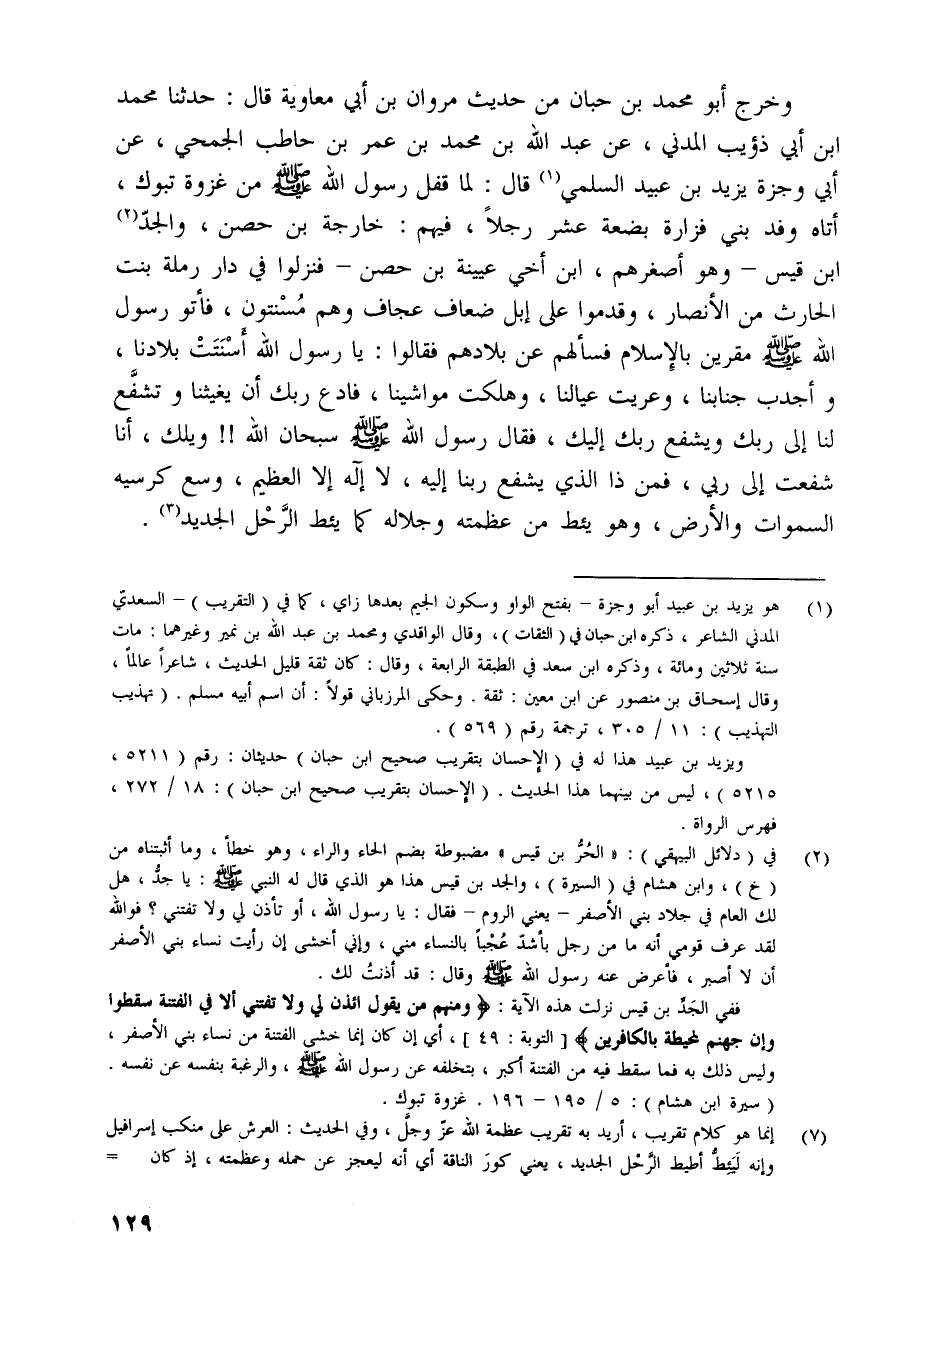 وخرج أبو محمد بن حبان من حديث مروان بن أبي معاوية قال : حدثنا محمد
ابن أبي ذؤيب المدني ، عن عبد الله بن محمد بن عمر بن حاطب الجمحي ، عن
أبي وجزة يزيد بن عبيد السلمي(١) قال : لما قفل رسول الله ﷺ من غزوة تبوك ،
أتاه وفد بني فزارة بضعة عشر رجلاً ، فيهم : خارجة بن حصن ، والجدّ(٢)
ابن قيس – وهو أصغرهم ، ابن أخي عيينة بن حصن – فنزلوا في دار رملة بنت
الحارث من الأنصار ، وقدموا على إبل ضعاف عجاف وهم مُسْنتون ، فأتو رسول
الله ﷺ مقرين بالإسلام فسألهم عن بلادهم فقالوا : يا رسول الله أَسْنَتَتْ بلادنا ،
و أجدب جنابنا ، وعريت عيالنا ، وهلكت مواشينا ، فادع ربك أن يغيثنا و تشفَّع
لنا إلى ربك ويشفع ربك إليك ، فقال رسول الله ﷺ سبحان الله !! ويلك ، أنا
شفعت إلى ربي ، فمن ذا الذي يشفع ربنا إليه ، لا إلٓه إلا العظيم ، وسع كرسيه
السموات والأرض ، وهو يئط من عظمته وجلاله كما يئط الرَّحْل الجديد(٣) .
(١) هو يزيد بن عبيد أبو وجزة – بفتح الواو وسكون الجيم بعدها زاي ، كما في ( التقريب ) – السعديّ
المدني الشاعر ، ذكره ابن حبان في ( الثقات ) ، وقال الواقدي ومحمد بن عبد الله بن نمير وغيرهما : مات
سنة ثلاثين ومائة ، وذكره ابن سعد في الطبقة الرابعة ، وقال : كان ثقة قليل الحديث ، شاعراً عالماً ،
وقال إسحاق بن منصور عن ابن معين : ثقة . وحكى المرزباني قولاً : أن اسم أبيه مسلم . ( تهذيب
التهذيب ) : ١١ / ٣٠٥ ، ترجمة رقم ( ٥٦٩ ) .
ويزيد بن عبيد هذا له في ( الإحسان بتقريب صحيح ابن حبان ) حديثان : رقم ( ٥٢١١ ،
٥٢١٥ ) ، ليس من بينهما هذا الحديث . ( الإحسان بتقريب صحيح ابن حبان ) : ١٨ / ٢٧٢ ،
فهرس الرواة .
(٢) في ( دلائل البيهقي ) : « الحُرُّ بن قيس » مضبوطة بضم الحاء والراء ، وهو خطأ ، وما أثبتناه من
( خ ) ، وابن هشام في ( السيرة ) ، والجد بن قيس هذا هو الذي قال له النبي ﷺ : يا جدُّ ، هل
لك العام في جلاد بني الأصفر – يعني الروم – فقال : يا رسول الله ، أو تأذن لي ولا تفتني ؟ فوالله
لقد عرف قومي أنه ما من رجل بأشدّ عُجْباً بالنساء مني ، وإني أخشى إن رأيت نساء بني الأصفر
أن لا أصبر ، فأعرض عنه رسول الله ﷺ وقال : قد أذنتُ لك .
ففي الجَدِّ بن قيس نزلت هذه الآية : ﴿ ومنهم من يقول ائذن لي ولا تفتني ألا في الفتنة سقطوا
وإن جهنم لمحيطة بالكافرين ﴾ [ التوبة : ٤٩ ] ، أي إن كان إنما خشى الفتنة من نساء بني الأصفر ،
وليس ذلك به فما سقط فيه من الفتنة أكبر ، بتخلفه عن رسول الله ﷺ ، والرغبة بنفسه عن نفسه .
( سيرة ابن هشام ) : ٥ / ١٩٥ – ١٩٦ . غزوة تبوك .
(٧) إنما هو كلام تقريب ، أريد به تقريب عظمة الله عزّ وجلَّ ، وفي الحديث : العرش على منكب إسرافيل
وإنه لَيَئِطُّ أطيط الرَّحْل الجديد ، يعني كورَ الناقة أي أنه ليعجز عن حمله وعظمته ، إذ كان =
١٢٩